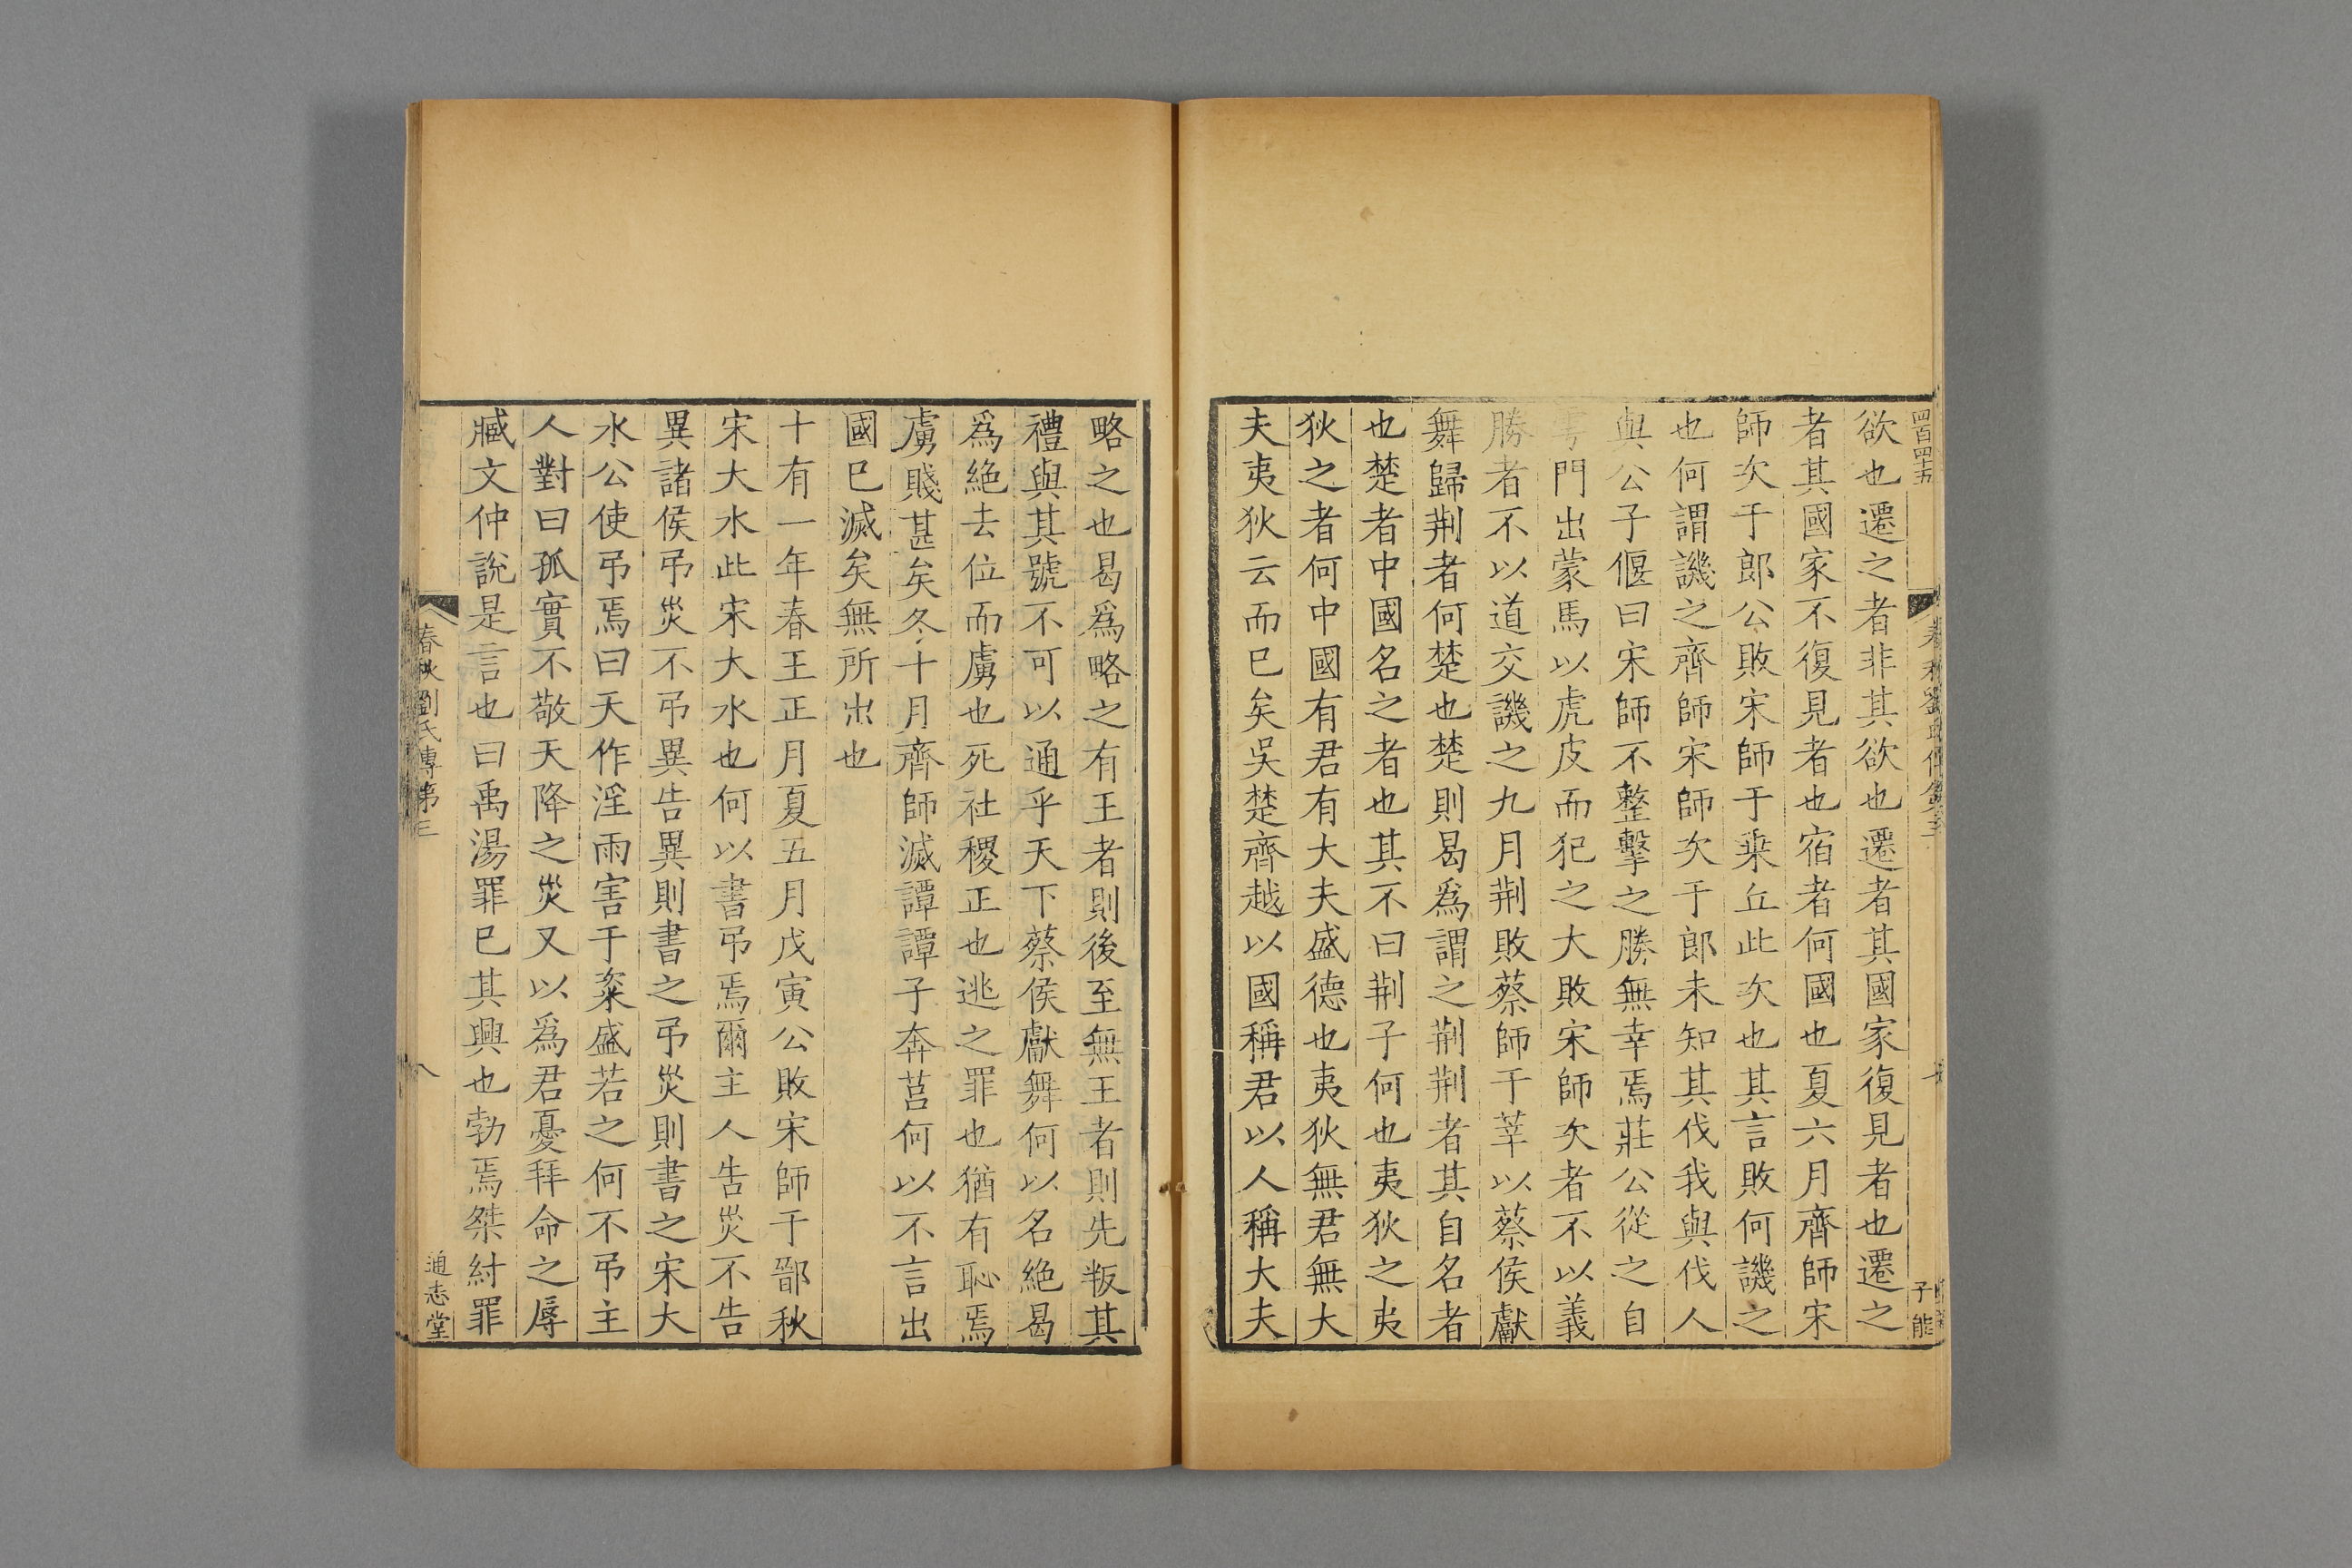 欲也遷之者非其欲也遷者其國家復見者也遷之
者其國家不復見者也宿者何國也夏六月齊師宋
師次于郎公敗宋師于乗丘此次也其言敗何譏之
也何謂譏之齊師宋師次于郎未知其伐我與伐人
與公子偃曰宋師不整擊之勝無幸焉莊公從之自
門出蒙馬以虎皮而犯之大敗宋師次者不以義
勝者不以道交譏之九月荆敗蔡師于莘以蔡侯獻
舞歸荆者何楚也楚則曷爲謂之荆荆者其自名者
也楚者中國名之者也其不曰荆子何也夷狄之夷
狄之者何中國有君有大夫盛德也夷狄無君無大
夫夷狄云而已矣吳楚齊越以國稱君以人稱大夫
略之也曷爲略之有王者則後至無王者則先叛其
禮與其號不可以通乎天下蔡侯獻舞何以名絶曷
爲絶去位而虜也死社稷正也逃之罪也猶有恥焉
虜賤甚矣冬十月齊師滅譚譚子奔莒何以不言出
國已滅矣無所出也
十有一年春王正月夏五月戊寅公敗宋師于鄑秋
宋大水此宋大水也何以書弔焉爾主人告災不告
異諸侯弔災不弔異告異則書之弔災則書之宋大
水公使弔焉曰天作淫雨害于粢盛若之何不弔主
人對曰孤實不敬天降之災又以爲君憂拜命之辱
臧文仲說是言也曰禹湯罪已其興也勃焉桀紂罪
春秋劉氏傳第三
八
通志堂
四百四五
子能